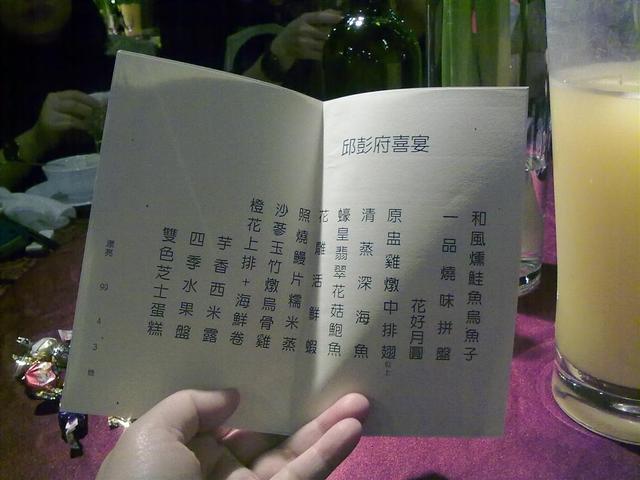 邱彭府喜宴
和風燻鮭魚烏魚子
一品燒味拼盤
花好月圓
原盅雞燉中排翅
清蒸深海魚
蠔皇翡翠花菇鮑魚
花雕活鮮蝦
照燒鰻片糯米蒸
沙蔘玉竹燉烏骨雞
橙花上排+海鮮卷
芋香西米露
四季水果盤
雙色芝士蛋糕
99.4.3 晚